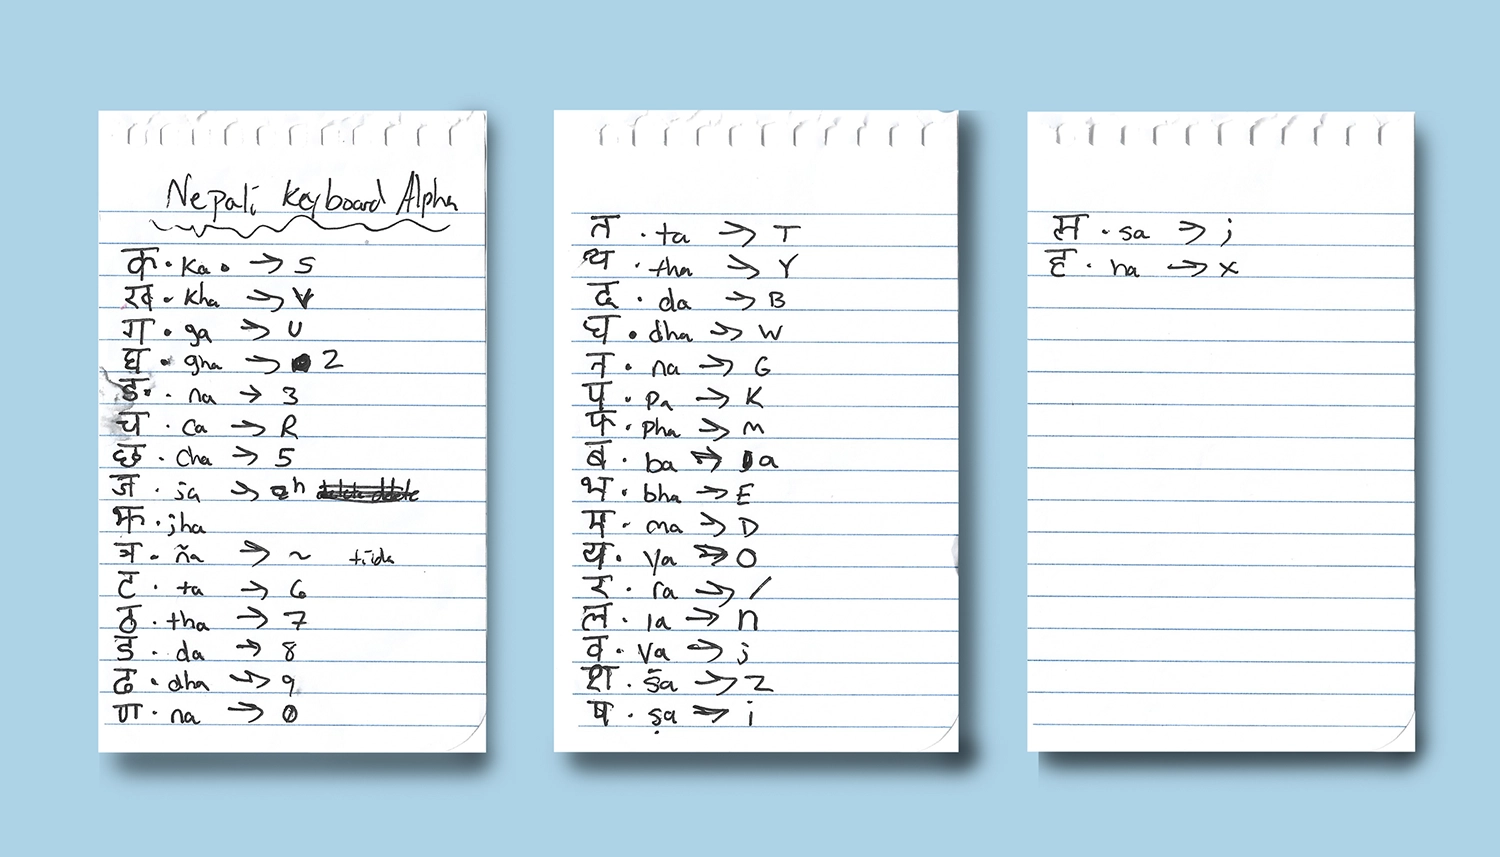 Nepali Keyboard Alpha
क • Ka • → S
ख • Kha → V
ग • ga → U
घ • gha → 2
ङ • na → 3
च • ca → R
छ • cha → 5
ज • ja → h
झ • jha
ञ • ña → ~ tilda
ट • ta → 6
ठ • tha → 7
ड • da → 8
ढ • dha → 9
ण • na → 0
त • ta → T
थ • tha → Y
द • da → B
ध • dha → W
न • na → G
प • pa → K
फ • pha → m
ब • ba → a
भ • bha → E
म • ma → D
य • ya → O
र • ra → /
ल • la → n
व • va → j
श • śa → Z
ष • ṣa → i
स • sa → ;
ह • ha → x